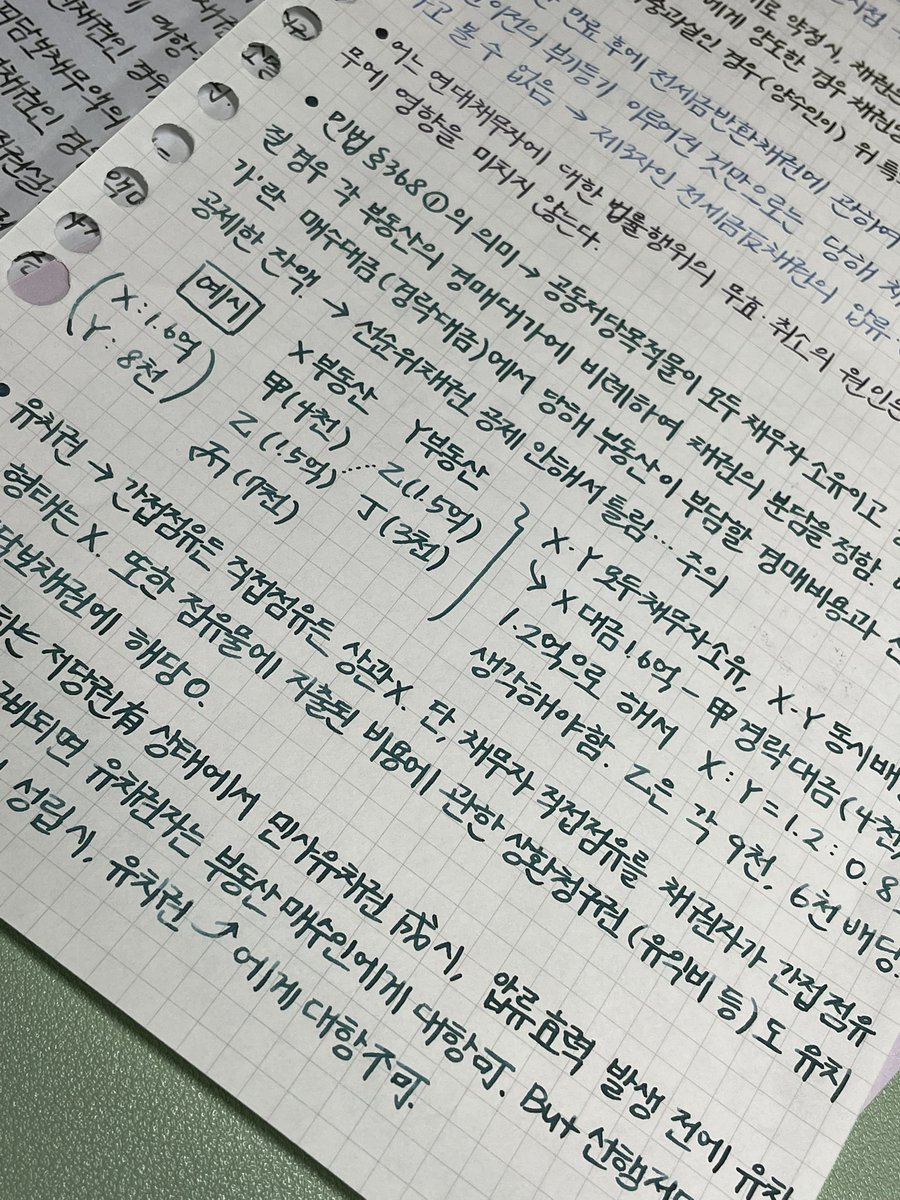 시점
기로 약정시, 채권은
에게 양도한 경우 채권
중과실인 경우(양수인이) 위 특
만료 후에 전세금반환채권에 관하여
이전의 부기등기 이루어진 것만으로는 당해
볼 수 없음 → 제3자인 전세금反채권의 압류
• 어느 연대채무자에 대한 법률행위의 무효·취소의 원인은
무에 영향을 미치지 않는다.
• 민법 §368①의 의미 → 공동저당목적물이 모두 채무자 소유이고
될 경우 각 부동산의 경매대가에 비례하여 채권의 분담을 정함.
가'란 매수대금(경락대금)에서 당해 부동산이 부담할 경매비용과 선
공제한 잔액. → 선순위채권 공제 안해서 틀림… 주의
예시
(X : 1.6억
Y : 8천)
X 부동산
甲(4천)
乙(1.5억)
丙(7천)
Y부동산
乙(1.5억)
丁(3천)
X·Y 모두 채무자소유, X·Y 동시배
↳ X 대금 1.6억 - 甲 경락대금(4천)
1.2억으로 해서 X : Y = 1.2 : 0.8
생각해야함. 乙은 각 9천, 6천 배당.
• 유치권 → 간접점유든 직접점유든 상관X. 단, 채무자 직접점유를 채권자가 간접점유
형태는 X. 또한 점유물에 지출된 비용에 관한 상환청구권(유익비 등)도 유치
담보채권에 해당O.
하는 저당권有 상태에서 민사유치권 成시, 압류효력 발생 전에 유치
비되면 유치권자는 부동산 매수인에게 대항可. But 선행저
성립시, 유치권 ⤴에게 대항不可.